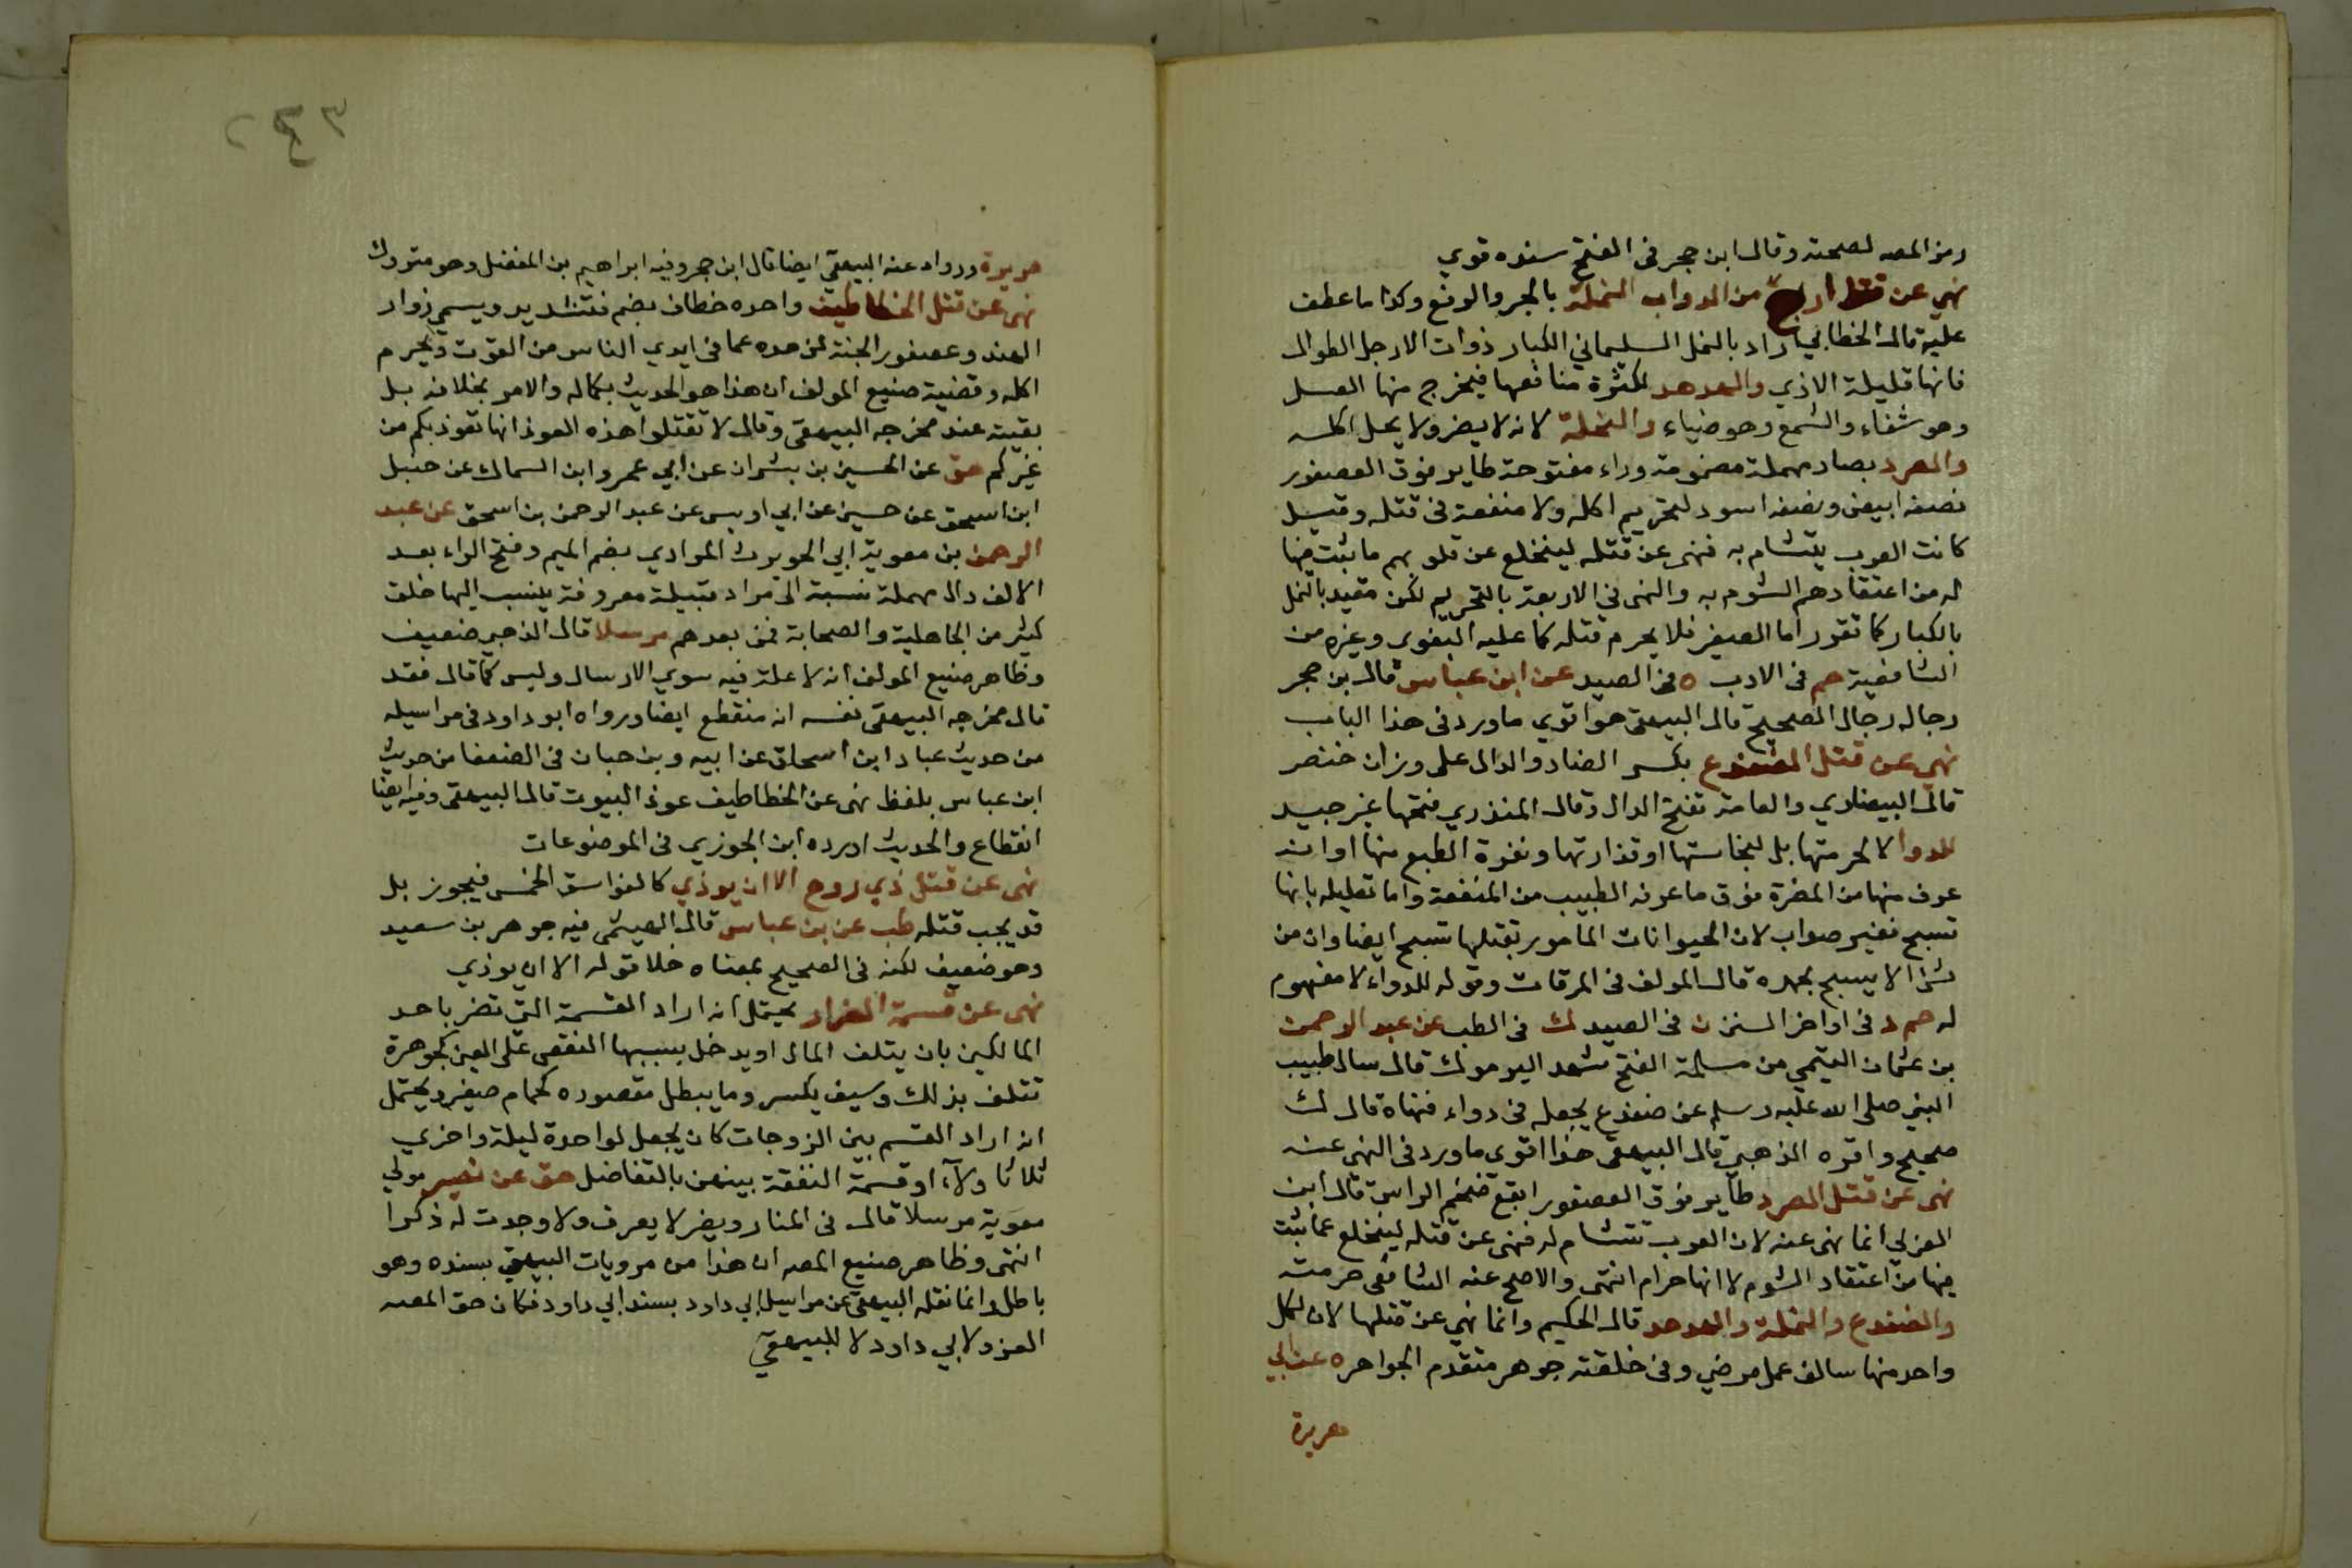 رمز المصه لصحته وقال ابن حجر فى الفتح سنده قوي
نهي عن قتل أربع من الدواب النملة بالجر والرفع وكذا ما عطف
عليه قال الخطابي اراد بالنمل السليماني الكبار ذوات الارجل الطوال
فانها قليلة الاذي والهدهد لكثرة منافعها فيخرج منها العسل
وهو شفاء والشمع وهو ضياء والنحلة لانه لا يضر ولا يحل اكله
والصرد بصاد مهملة مضمومة وراء مفتوحة طاير فوق العصفور
نصفه ابيض ونصفه اسود لتحريم اكله ولا منفعة فى قتله وقيل
كانت العرب تتشام به فنهى عن قتله لينخلع عن قلوبهم ما ثبت فيها
له من اعتقادهم الشوم به والنهى فى الاربعة بالتحريم لكن مقيد بالنمل
بالكبار كما تقرر اما الصغير فلا يحرم قتله كما عليه البغوى وغيره من
الشافعية حم فى الادب ه فى الصيد عن ابن عباس قال بن حجر
رجاله رجال الصحيح قال البيهقى هو اقوي ما ورد فى هذا الباب
نهي عن قتل الضفدع بكسر الضاد والدال على وزان خنصر
قال البيضاوي والعامة تفتح الدال وقال المنذري فتحها غير جيد
للدوا لا لحرمتها بل لنجاستها او قذارتها ونفرة الطبع منها او انه
عرف منها من المضرة فوق ما عرفه الطبيب من المنفعة واما تعليله بانها
تسبح فغير صواب لان الحيوانات المامور بقتلها تسبح ايضا وان من
شئ الا يسبح بحمده قال المولف فى المرقات وقوله للدواء لا مفهوم
له حم د فى اواخر السنن ن فى الصيد ك فى الطب عن عبد الرحمن
بن عثمان التيمي من مسلمة الفتح شهد اليرموك قال سال طبيب
النبى صلى الله عليه وسلم عن ضفدع يجعله فى دواء فنهاه قال ك
صحيح واقره الذهبي قال البيهقى هذا اقوى ما ورد فى النهى عنه
نهى عن قتل الصرد طاير فوق العصفور ابقع ضخم الراس قال ابن
العربي انما نهى عنه لان العرب تتشام له فنهى عن قتله لينخلع عما ثبت
فيها من اعتقاد الشوم لا انها حرام انتهى والاصح عند الشافعى حرمته
والضفدع والنملة والهدهد قال الحكيم وانما نهي عن قتلها لان لكل
واحد منها سالف عمل مرضي وفى خلقته جوهر متقدم الجواهر ه عن ابي
هريرة
٢٤٣
هريرة ورواه عنه البيهقي ايضا قال ابن حجر وفيه ابراهيم بن المفضل وهو متروك
نهى عن قتل الخطاطيف واحده خطاف بضم فتشديد ويسمى زوار
الهند وعصفور الجنة لزهده عما فى ايدي الناس من القوت ويحرم
اكله وقضية صنيع المولف ان هذا هو الحديث بكماله والامر بخلافه بل
بقيته عند مخرجه البيهقى وقال لا تقتلوا هذه العوذ انها تعوذ بكم من
غيركم هق عن الحسين بن بشران عن ابي عمرو ابن السماك عن حنبل
ابن اسحق عن حسين عن ابي اويس عن عبد الرحمن بن اسحق عن عبد
الرحمن بن معوية ابي الحويرث المرادي بضم الميم وفتح الراء بعد
الالف دال مهملة نسبة الى مراد قبيلة معروفة ينسب اليها خلق
كثير من الجاهلية والصحابة فمن بعدهم مرسلا قال الذهبي ضعيف
وظاهر صنيع المولف انه لا علة فيه سوي الارسال وليس كما قال فقد
قال مخرجه البيهقى نفسه انه منقطع ايضا ورواه ابو داود فى مراسيله
من حديث عباد ابن اسحاق عن ابيه وبن حبان فى الضعفا من حديث
ابن عباس بلفظ نهى عن الخطاطيف عوذ البيوت قال البيهقى وفيه ايضا
انقطاع والحديث اورده ابن الجوزي فى الموضوعات
نهى عن قتل ذي روح الا ان يوذي كالفواسق الخمس فيجوز بل
قد يجب قتله طب عن بن عباس قال الهيثمى فيه جوهر بن سعيد
وهو ضعيف لكنه فى الصحيح بمعناه خلا قوله الا ان يوذي
نهى عن قسمة الضرار يحتمل انه اراد القسمة التى تضر باحد
المالكين بان يتلف المال او يدخل بسببها النقص على العين كجوهرة
تتلف بذلك وسيف يكسر وما يبطل مقصوده كحمام صغير ويحتمل
انه اراد القسم بين الزوجات كان يجعل لواحدة ليلة واخري
ثلاثا ولآء او قسمة النفقة بينهن بالتفاضل هق عن نصير مولي
معوية مرسلا قال فى المنار ونصير لا يعرف ولا وجدت له ذكرا
انتهى وظاهر صنيع المصه ان هذا من مرويات البيهقي بسنده وهو
باطل وانما نقله البيهقي عن مراسيل ابي داود بسند ابي داود فكان حق المصه
العزو لابي داود لا للبيهقي